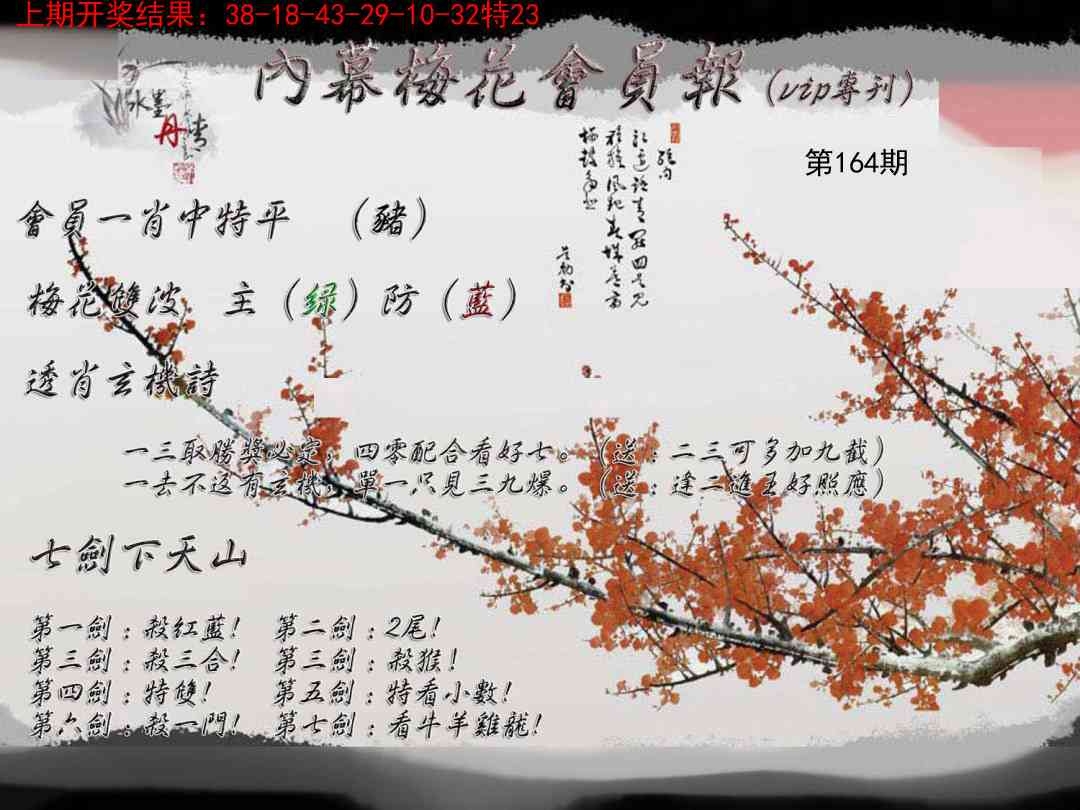 上期开奖结果：38-18-43-29-10-32特23
內幕梅花會員報（vip專刊）
水墨
丹青
第164期
會員一肖中特平　（豬）
梅花雙波　主（绿）防（藍）
透肖玄機詩
一三取勝獎必定，四零配合看好七。（送：二三可多加九截）
一去不返有玄機，單一只見三九爆。（送：逢二進王好照應）
七劍下天山
第一劍：殺紅藍！　第二劍：2尾！
第三劍：殺三合！　第三劍：殺猴！
第四劍：特雙！　第五劍：特看小數！
第六劍：殺一門！　第七劍：看牛羊雞龍！